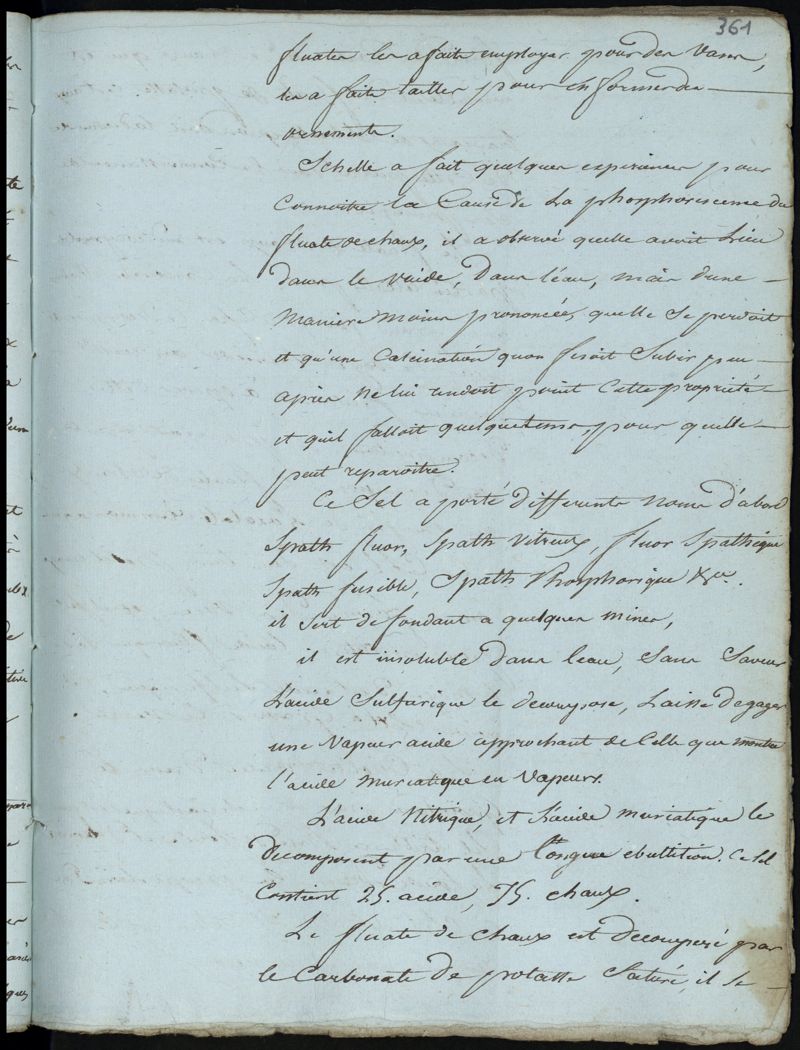 361
fluates les a fait employer pour des vases,
les a fait tailler pour en former des —
ornements.
Schelle a fait quelques experiences pour
connoitre la Cause de La phosphorescence du
fluate de chaux, il a observé quelle avoit Lieu
dans le vuide, Dans l'eau, mais d'une —
maniere moins prononcée, quelle se perdoit
et qu'une Calcination quon fesoit Subir peu —
apres ne lui rendoit point Cette propriété —
et quil falloit quelque tems, pour quelle —
peut reparoitre.
Ce Sel a porté differents noms d'abord
Spath fluor, Spath Vitreux, fluor Spathique
Spath fusible, Spath Phosphorique &ca.
il Sert de fondant a quelques mines,
il est insoluble dans leau, Sans Saveur
L'acide Sulfurique le decompose, Laisse degager
une Vapeur acide approchant de Celle que montre
l'acide muriatique en Vapeurs.
L'acide Nitrique, et L'acide muriatique le
decomposent par une longue ebullition. Ce Sel
Contient 25. acide, 75. chaux.
Le fluate de chaux est decomposé par
le Carbonate de potasse Saturé, il se —